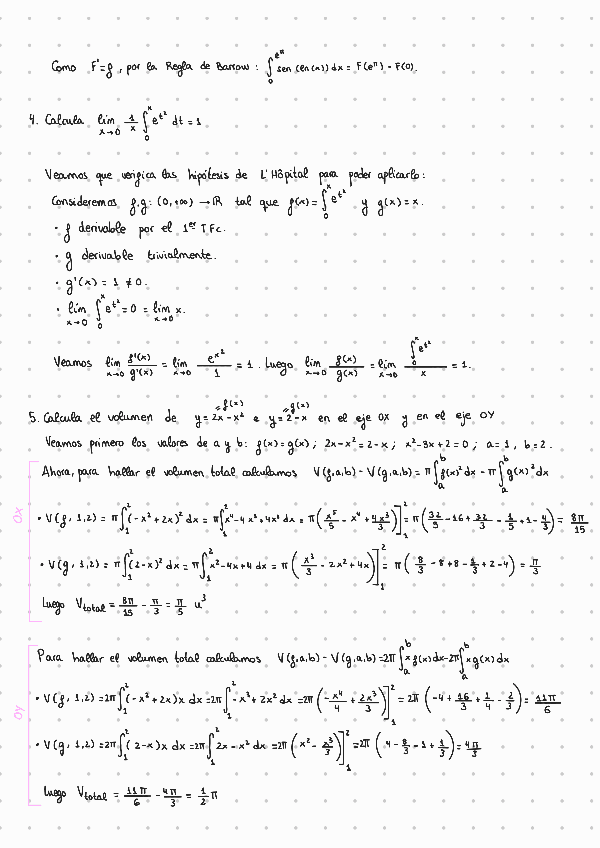 Como F'=f, por la Regla de Barrow: ∫₀^{e^π} sen(ln(x)) dx = F(e^π) - F(0).
4. Calcula lím_{x→0} 1/x ∫₀^x e^{t²} dt = 1
Veamos que verifica las hipótesis de L'Hôpital para poder aplicarlo:
Consideremos f,g: (0,+∞) → ℝ tal que f(x) = ∫₀^x e^{t²} y g(x) = x.
· f derivable por el 1er TFC.
· g derivable trivialmente.
· g'(x) = 1 ≠ 0.
· lím_{x→0} ∫₀^x e^{t²} = 0 = lím_{x→0} x.
Veamos lím_{x→0} f'(x)/g'(x) = lím_{x→0} e^{x²}/1 = 1. Luego lím_{x→0} f(x)/g(x) = lím_{x→0} ∫₀^x e^{t²}/x = 1.
=f(x) =g(x)
5. Calcula el volumen de y=2x-x² e y=2-x en el eje OX y en el eje OY
Veamos primero los valores de a y b: f(x)=g(x); 2x-x²=2-x; x²-3x+2=0; a=1, b=2.
Ahora, para hallar el volumen total calculamos V(f,a,b) - V(g,a,b) = π∫_a^b f(x)² dx - π∫_a^b g(x)² dx
OX
· V(f,1,2) = π∫₁²(-x²+2x)² dx = π∫₁² x⁴-4x³+4x² dx = π(x⁵/5 - x⁴ + 4x³/3)]₁² = π(32/5 - 16 + 32/3 - 1/5 + 1 - 4/3) = 8π/15
· V(g,1,2) = π∫₁²(2-x)² dx = π∫₁² x²-4x+4 dx = π(x³/3 - 2x² + 4x)]₁² = π(8/3 - 8 + 8 - 1/3 + 2 - 4) = π/3
Luego V_total = 8π/15 - π/3 = π/5 u³
Para hallar el volumen total calculamos V(f,a,b) - V(g,a,b) = 2π∫_a^b x f(x) dx - 2π∫_a^b x g(x) dx
OY
· V(f,1,2) = 2π∫₁²(-x²+2x)x dx = 2π∫₁² -x³+2x² dx = 2π(-x⁴/4 + 2x³/3)]₁² = 2π(-4 + 16/3 + 1/4 - 2/3) = 11π/6
· V(g,1,2) = 2π∫₁²(2-x)x dx = 2π∫₁² 2x-x² dx = 2π(x² - x³/3)]₁² = 2π(4 - 8/3 - 1 + 1/3) = 4π/3
Luego V_total = 11π/6 - 4π/3 = 1/2 π